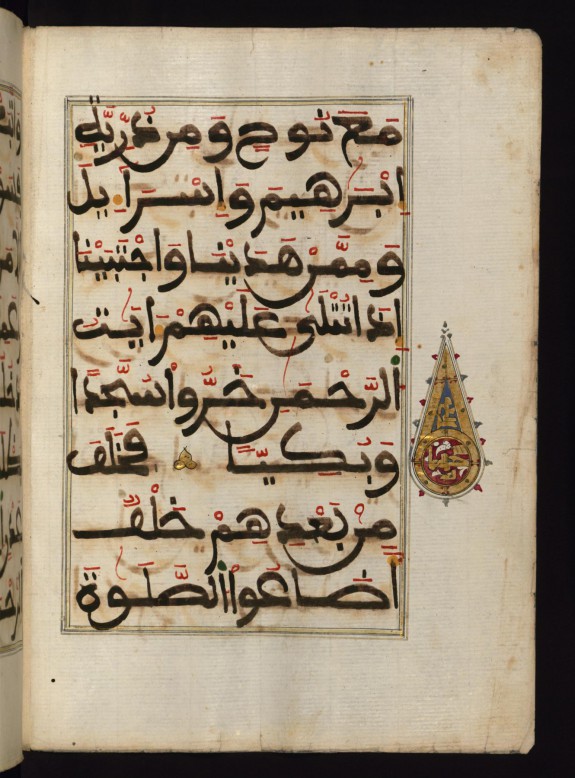 مَعَ نُوحٍ وَمِن ذُرِّيَّةِ
إِبْرَٰهِيمَ وَإِسْرَآءِيلَ
وَمِمَّنْ هَدَيْنَا وَاجْتَبَيْنَا
إِذَا تُتْلَىٰ عَلَيْهِمْ ءَايَٰتُ
الرَّحْمَٰنِ خَرُّوا سُجَّدًا
وَبُكِيًّا فَخَلَفَ
مِنۢ بَعْدِهِمْ خَلْفٌ
أَضَاعُوا الصَّلَوٰةَ